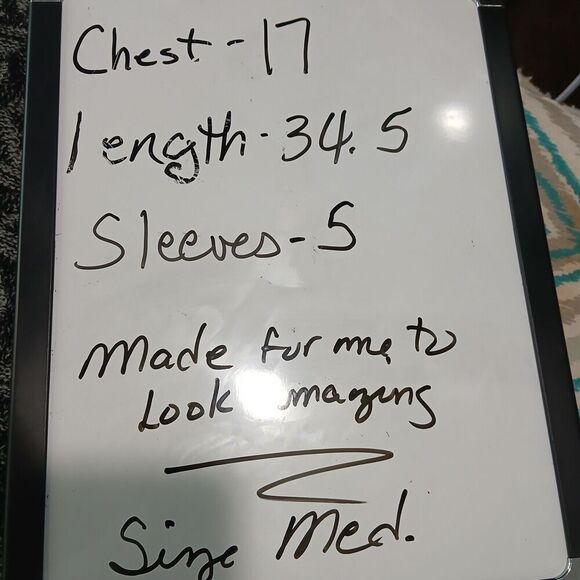 Chest - 17
length - 34.5
Sleeves - 5
Made for me to
Look amazing
Size Med.